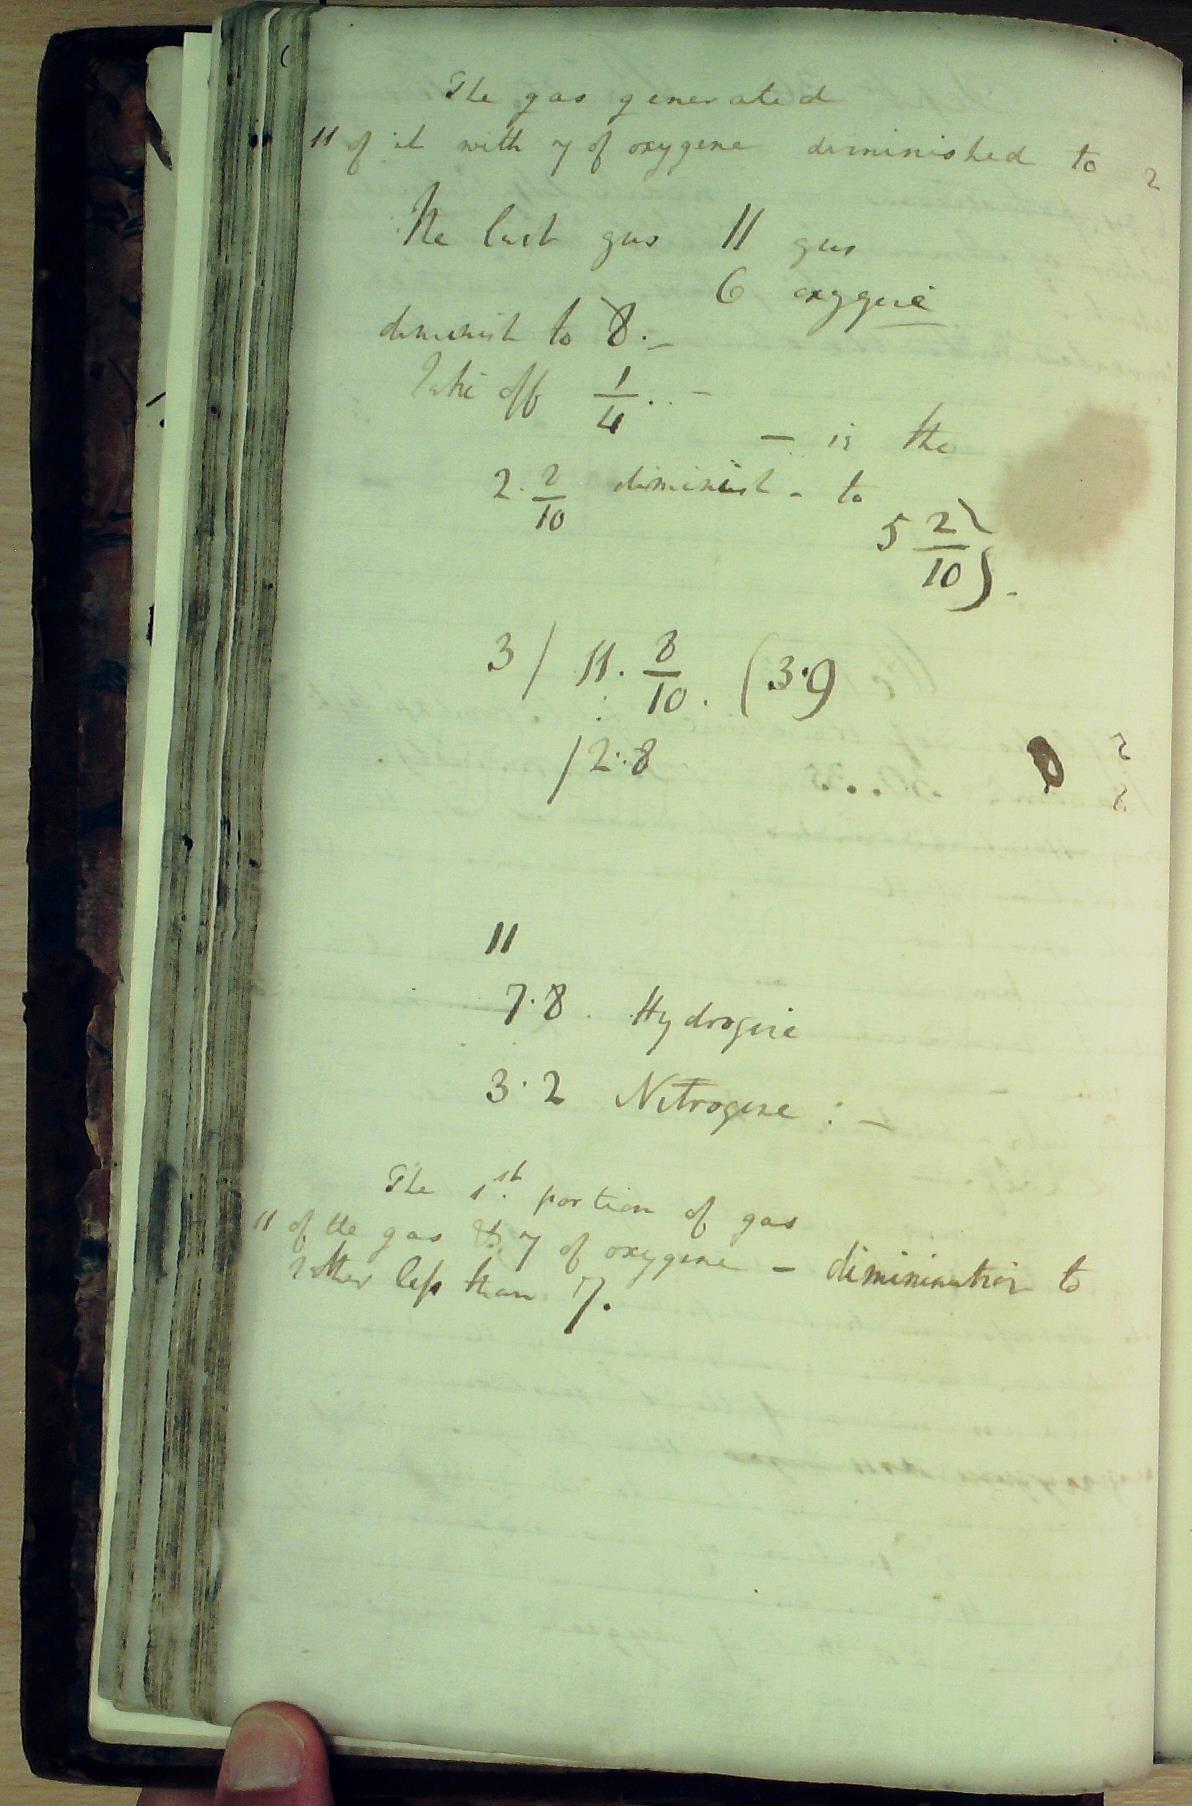 The gas generated
11 of it with 7 of oxygene diminished to 2
The last gas 11 gas
6 oxygene
diminish to 8.–
Take off 1/4 . . –
– is the
2. 2/10 diminish - to
5 2/10) .
3 / 11. 8/10. (3.9
/2.8
11
7.8. Hydrogene
3.2 Nitrogene : –
The 1st. portion of gas
11 of the gas & 7 of oxygene – diminination to
rather less than 7.